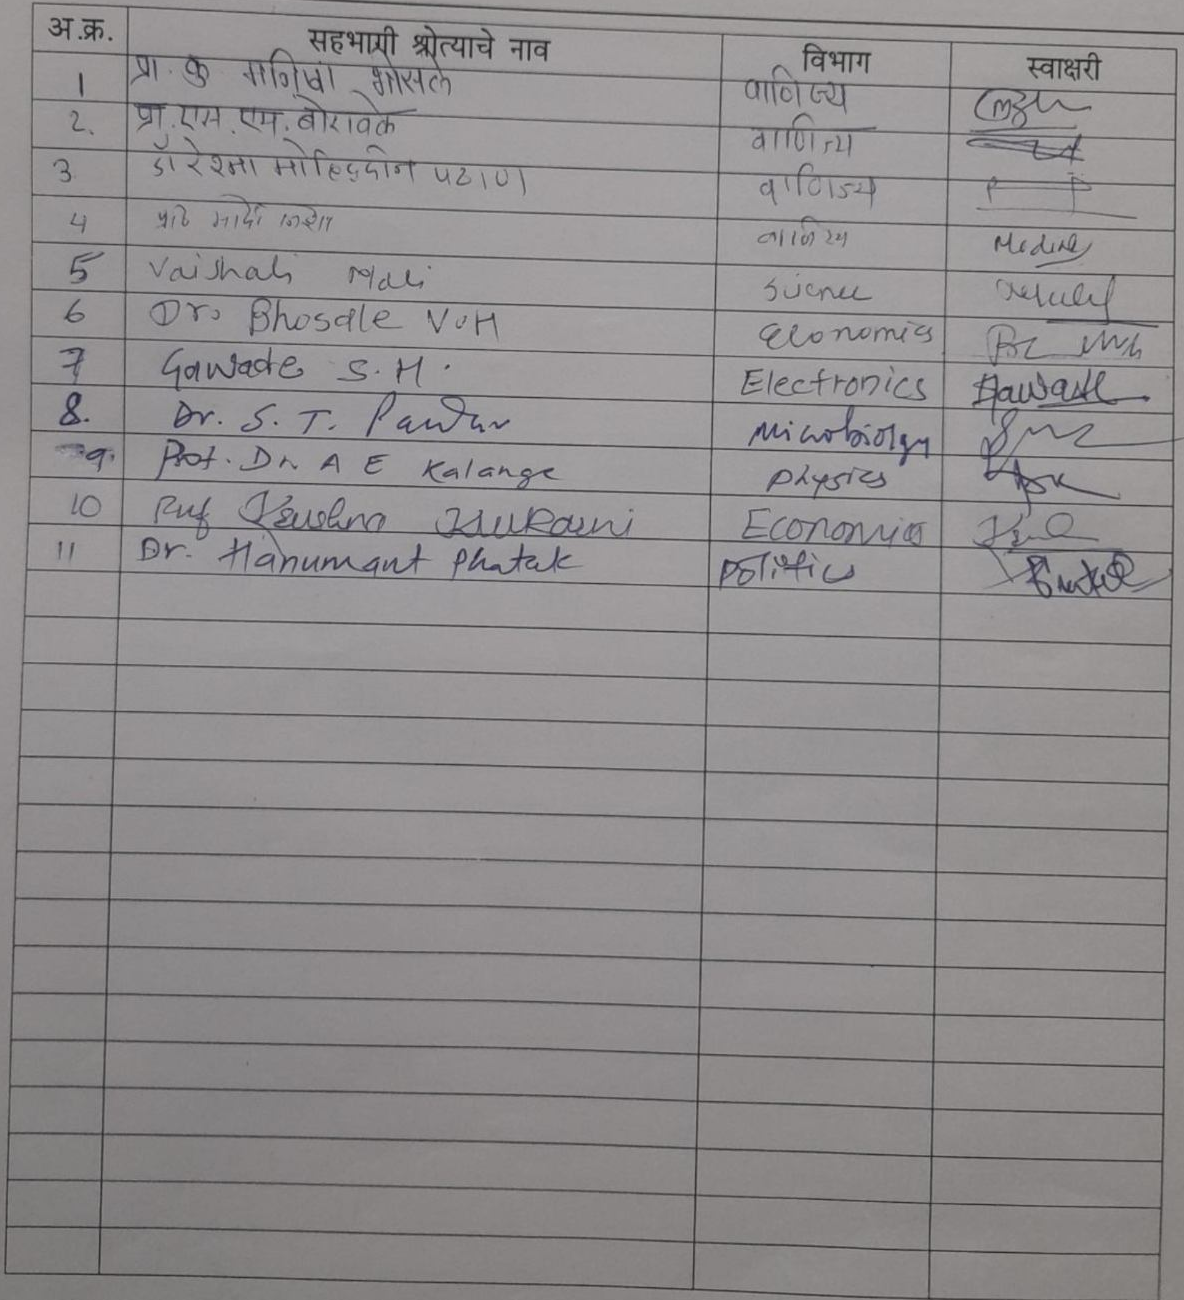 अ.क्र. सहभागी श्रोत्याचे नाव विभाग स्वाक्षरी
1 प्रा. कु मनिषा भोसले वाणिज्य
2. प्रा.एस.एम.बोरावके वाणिज्य
3 डॉ रेश्मा मोहिद्दीन पठाण वाणिज्य
4 वाणिज्य
5 Vaishali Mali Science
6 Dr. Bhosale V.H Economics
7 Gawade S.H. Electronics Gawade
8. Dr. S. T. Pawar Microbiolgy
9. Prof. Dr. A E Kalange Physics
10 Krushna Economics
11 Dr. Hanumant Phatak Politics